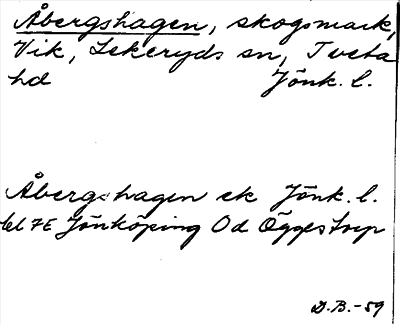 Åbergshagen, skogsmark,
Vik, Lekeryds sn, Tveta
hd Jönk. l.
Åbergshagen ek Jönk. l.
bl 7E Jönköping Od Öggestorp
D.B.-59